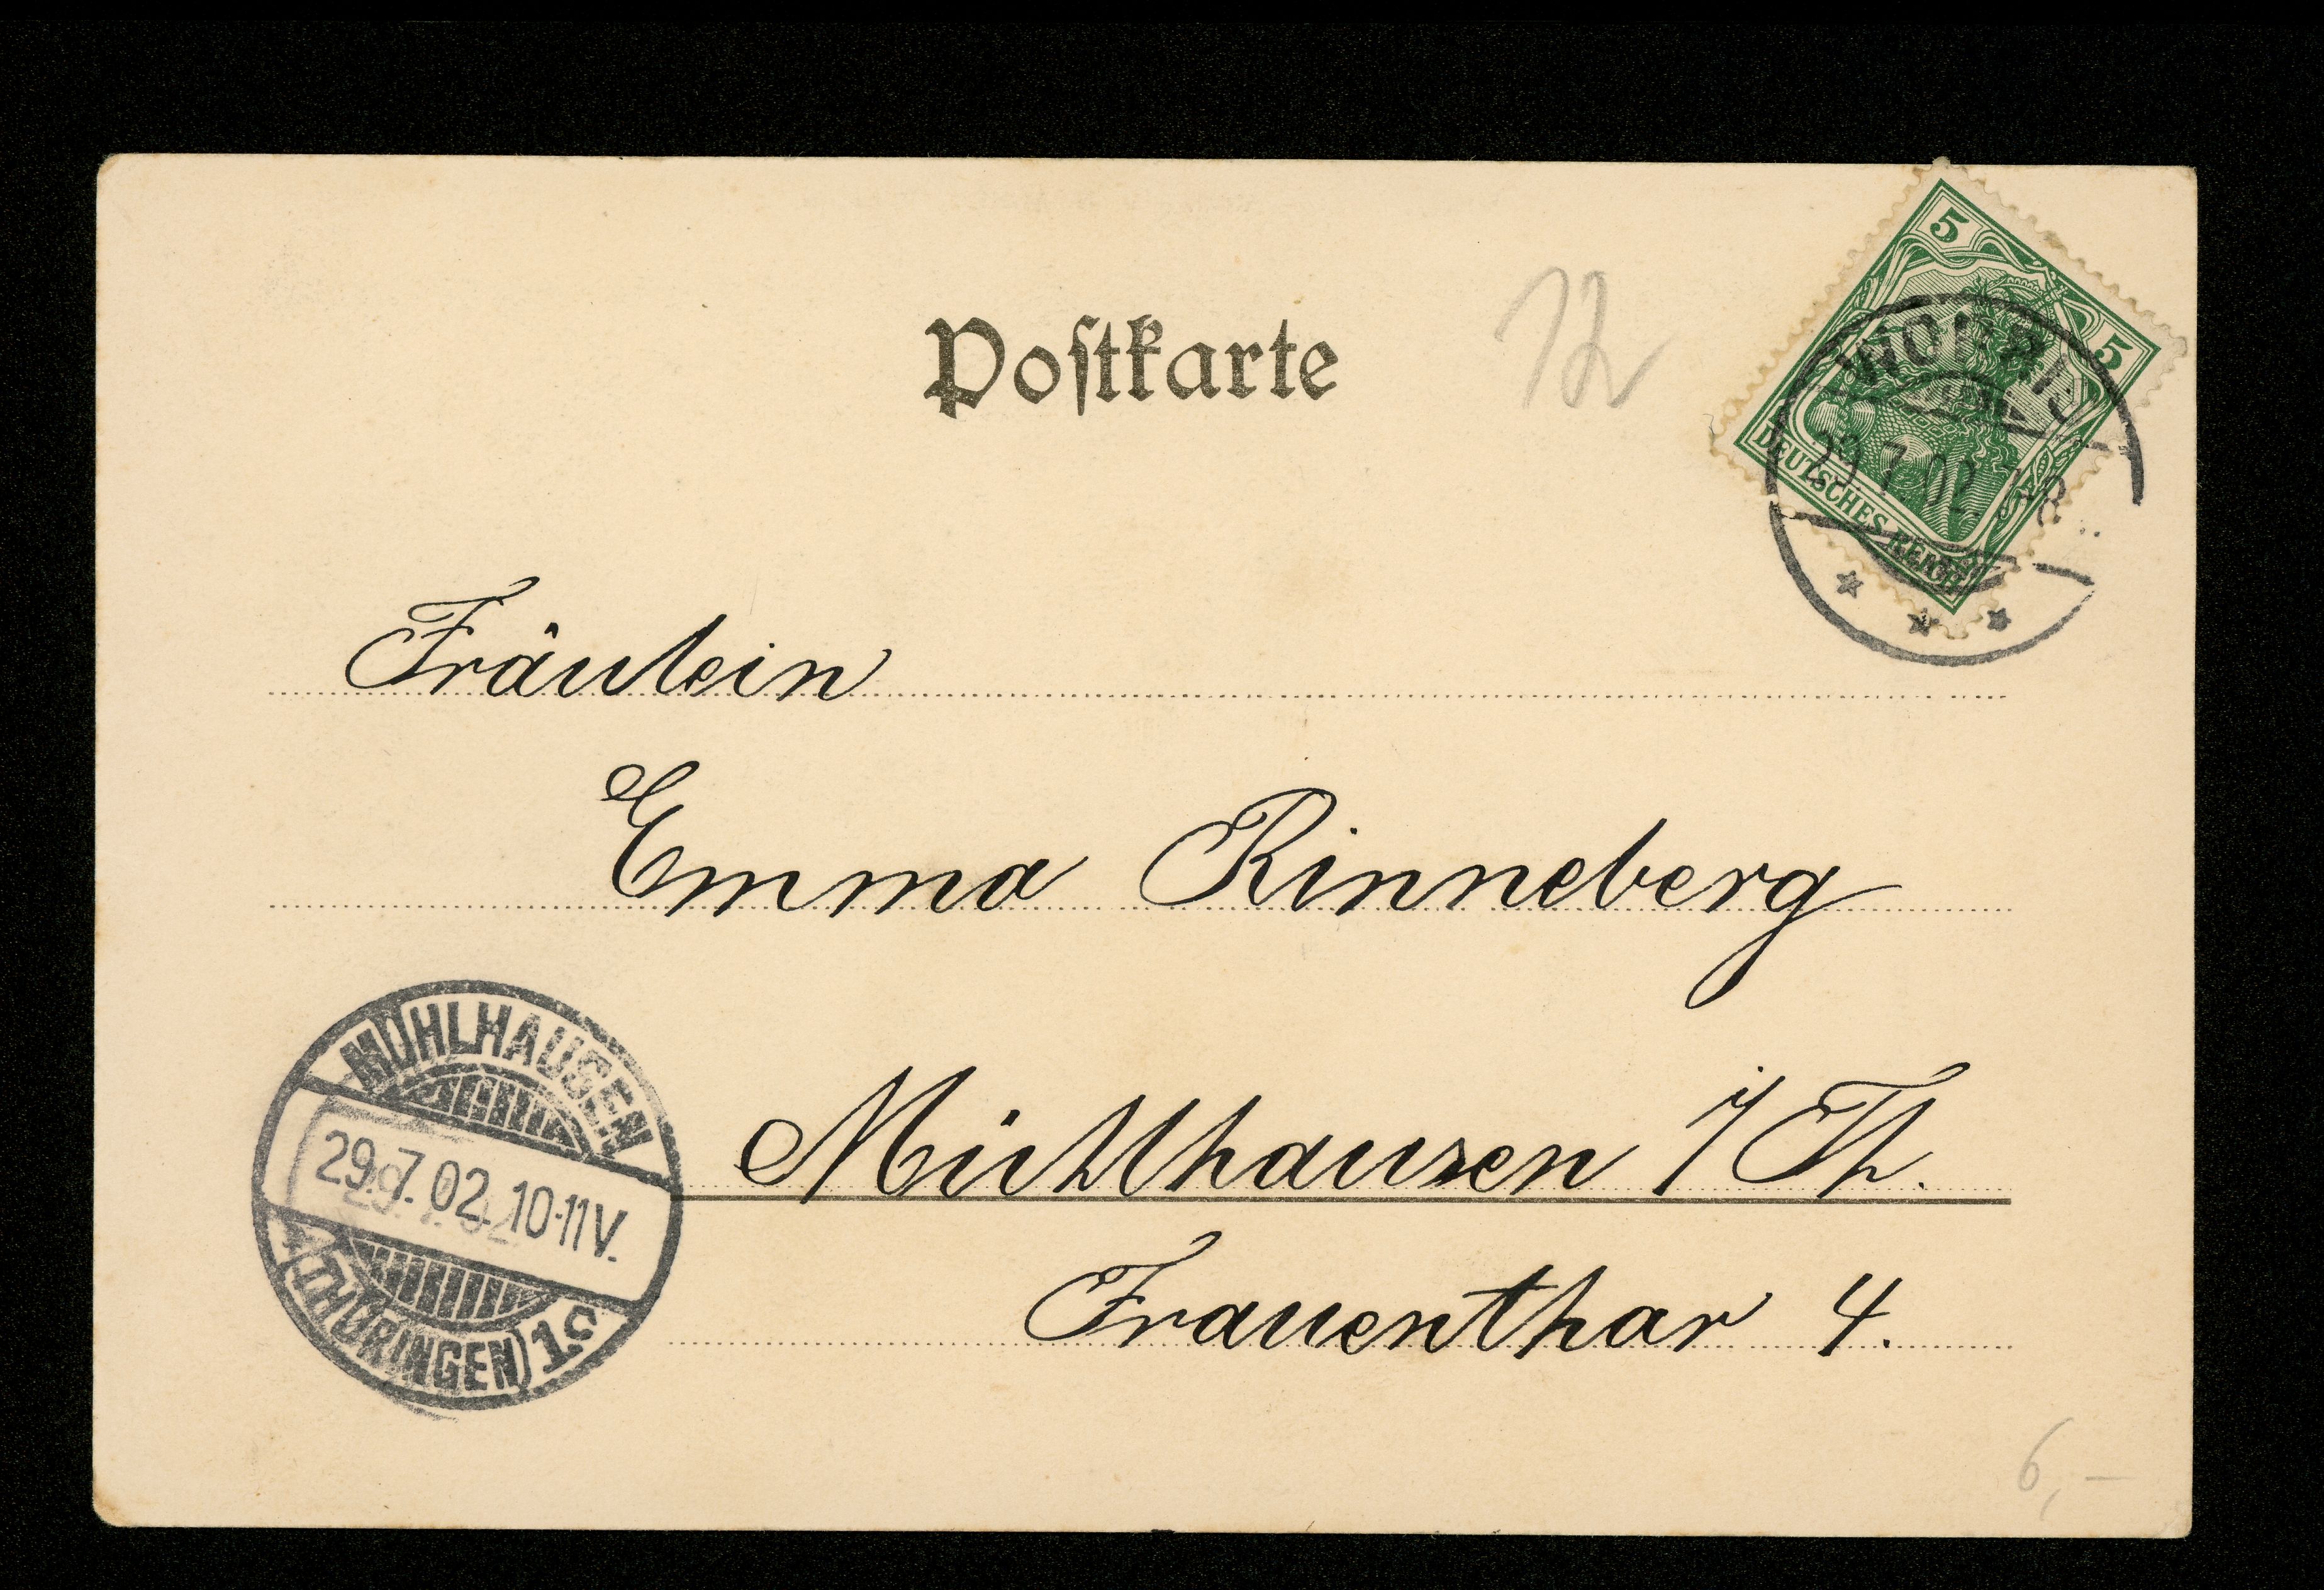 Postkarte
12
5
5
DEUTSCHES REICH
WORBIS
29.7.02.7-8
Fräulein
Emma Rinneberg
Mühlhausen i/Th.
Frauenthor 4.
MÜHLHAUSEN
29.7.02.10-11V.
(THÜRINGEN) 1c
6,-